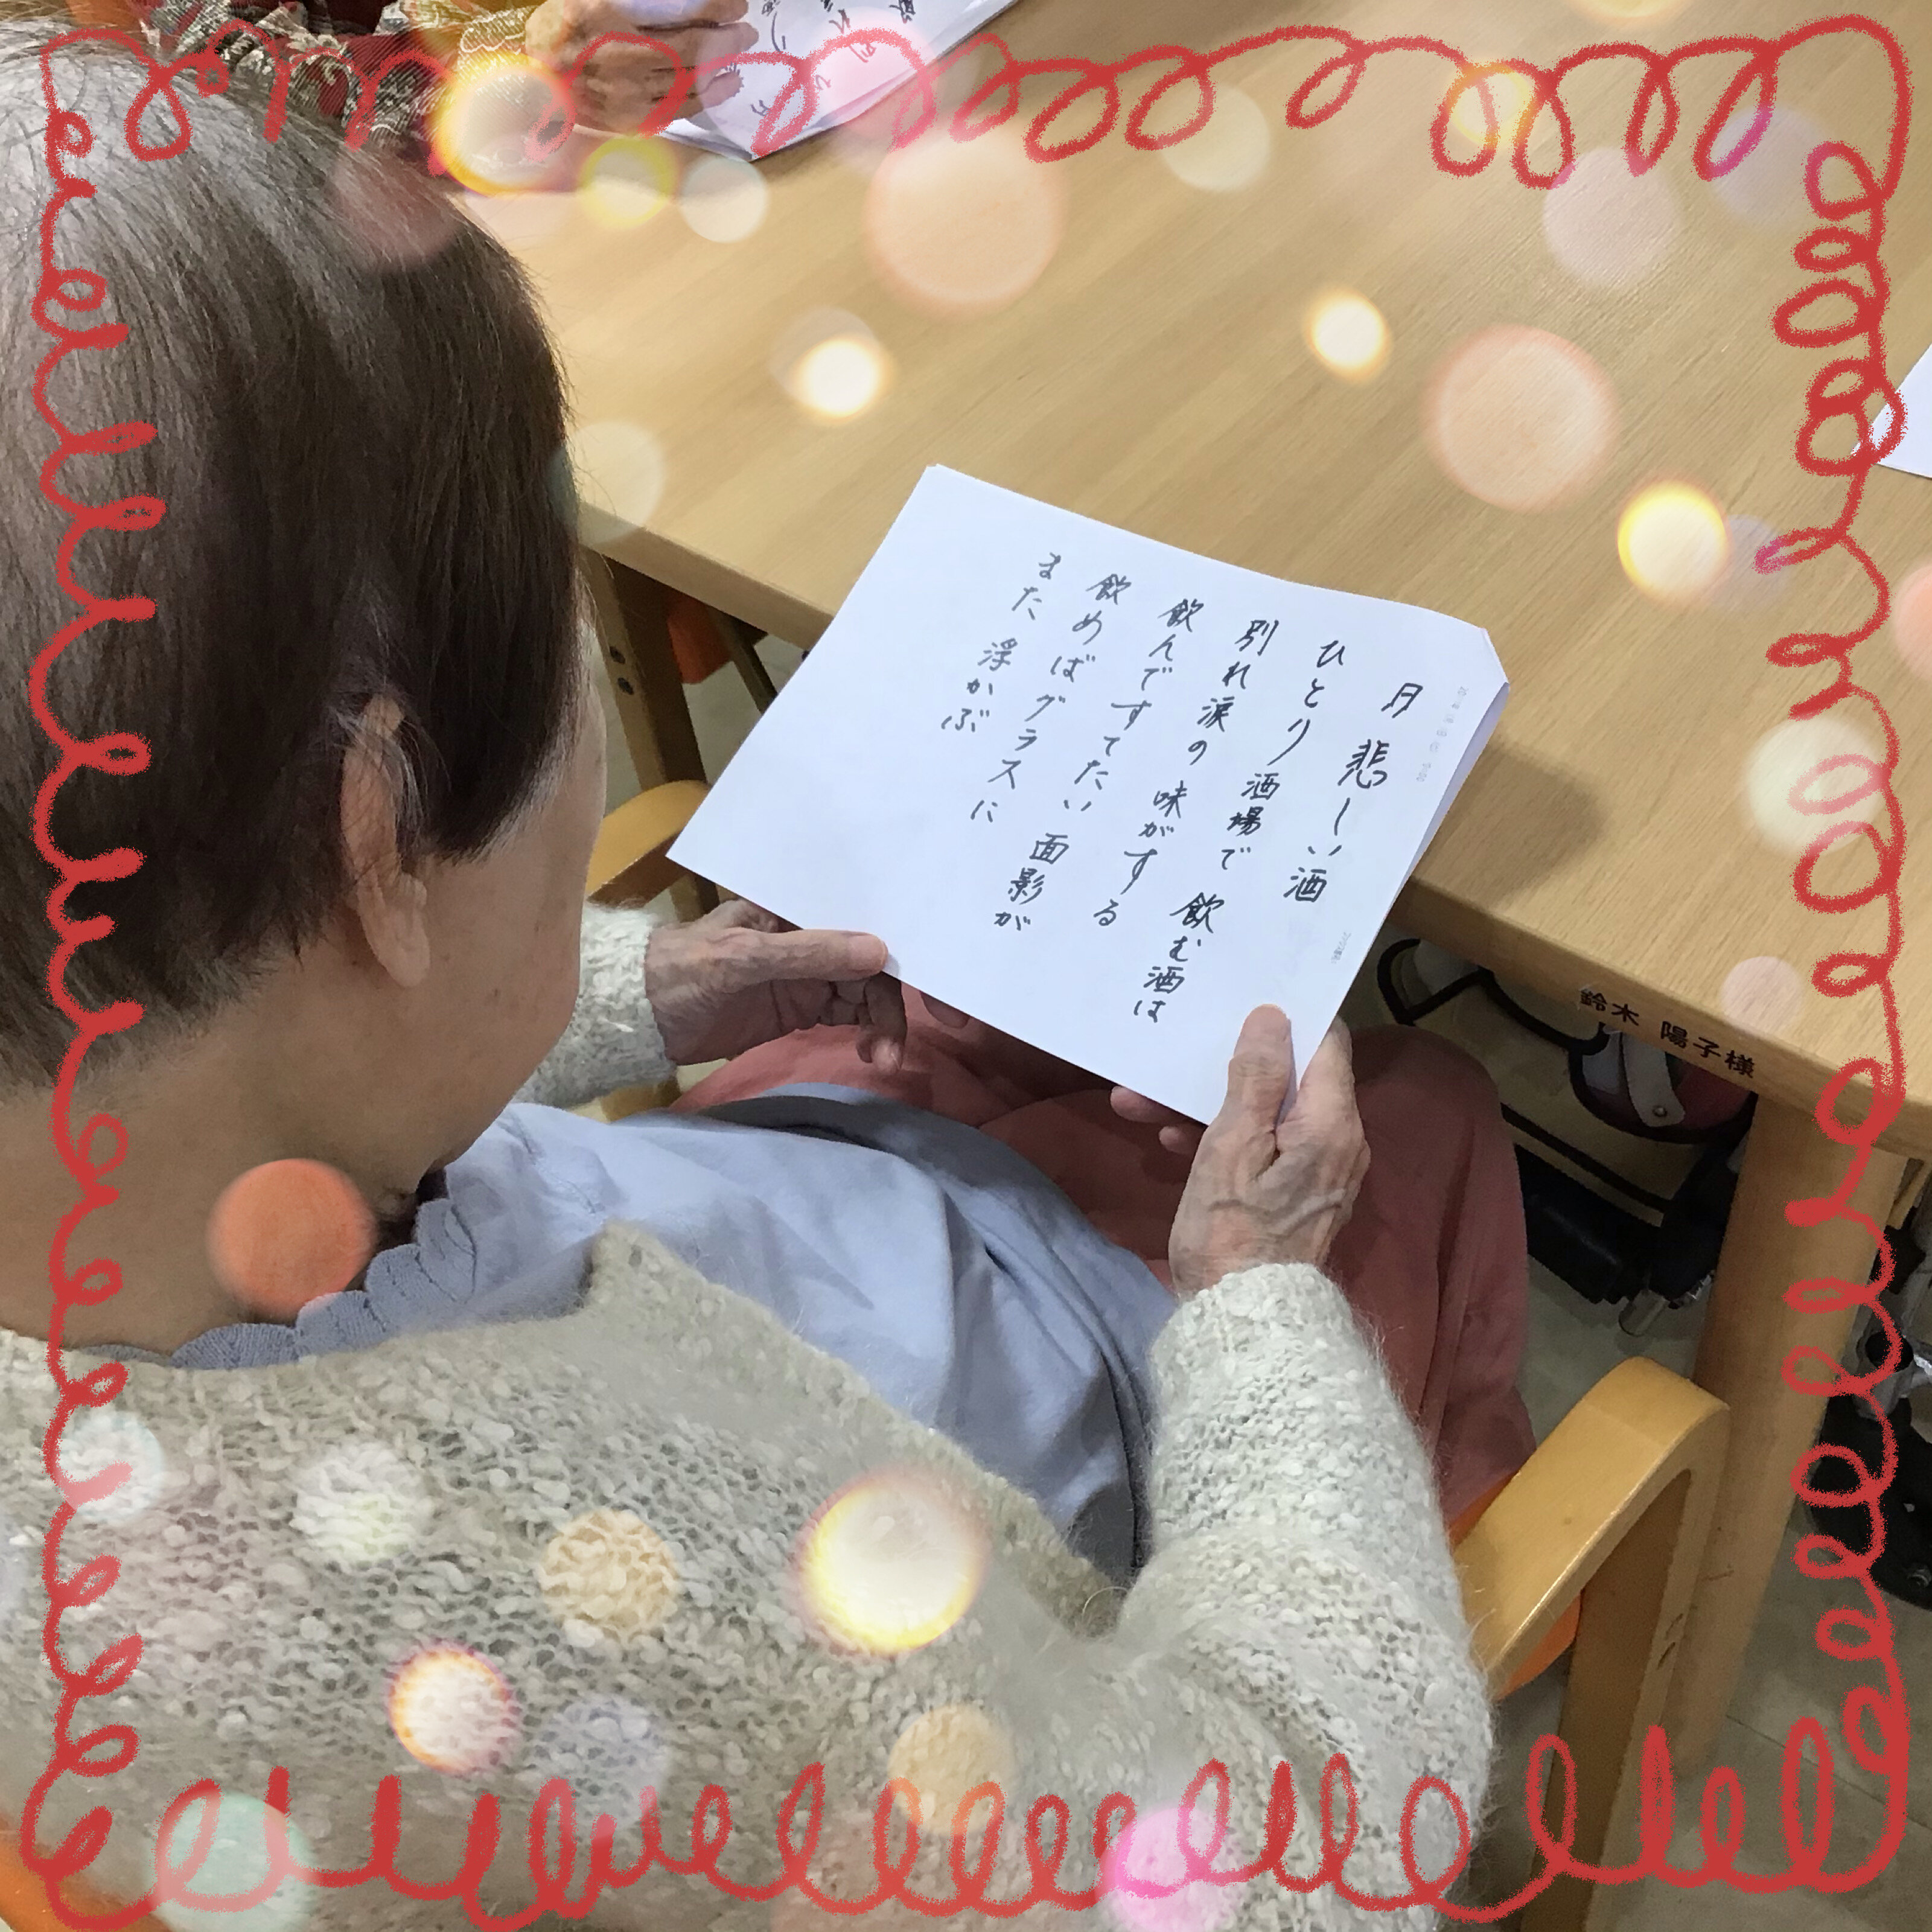 月 悲しい酒
ひとり酒場で 飲む酒は
別れ涙の 味がする
飲んですてたい 面影が
飲めばグラスに
また 浮かぶ
鈴木 陽子様